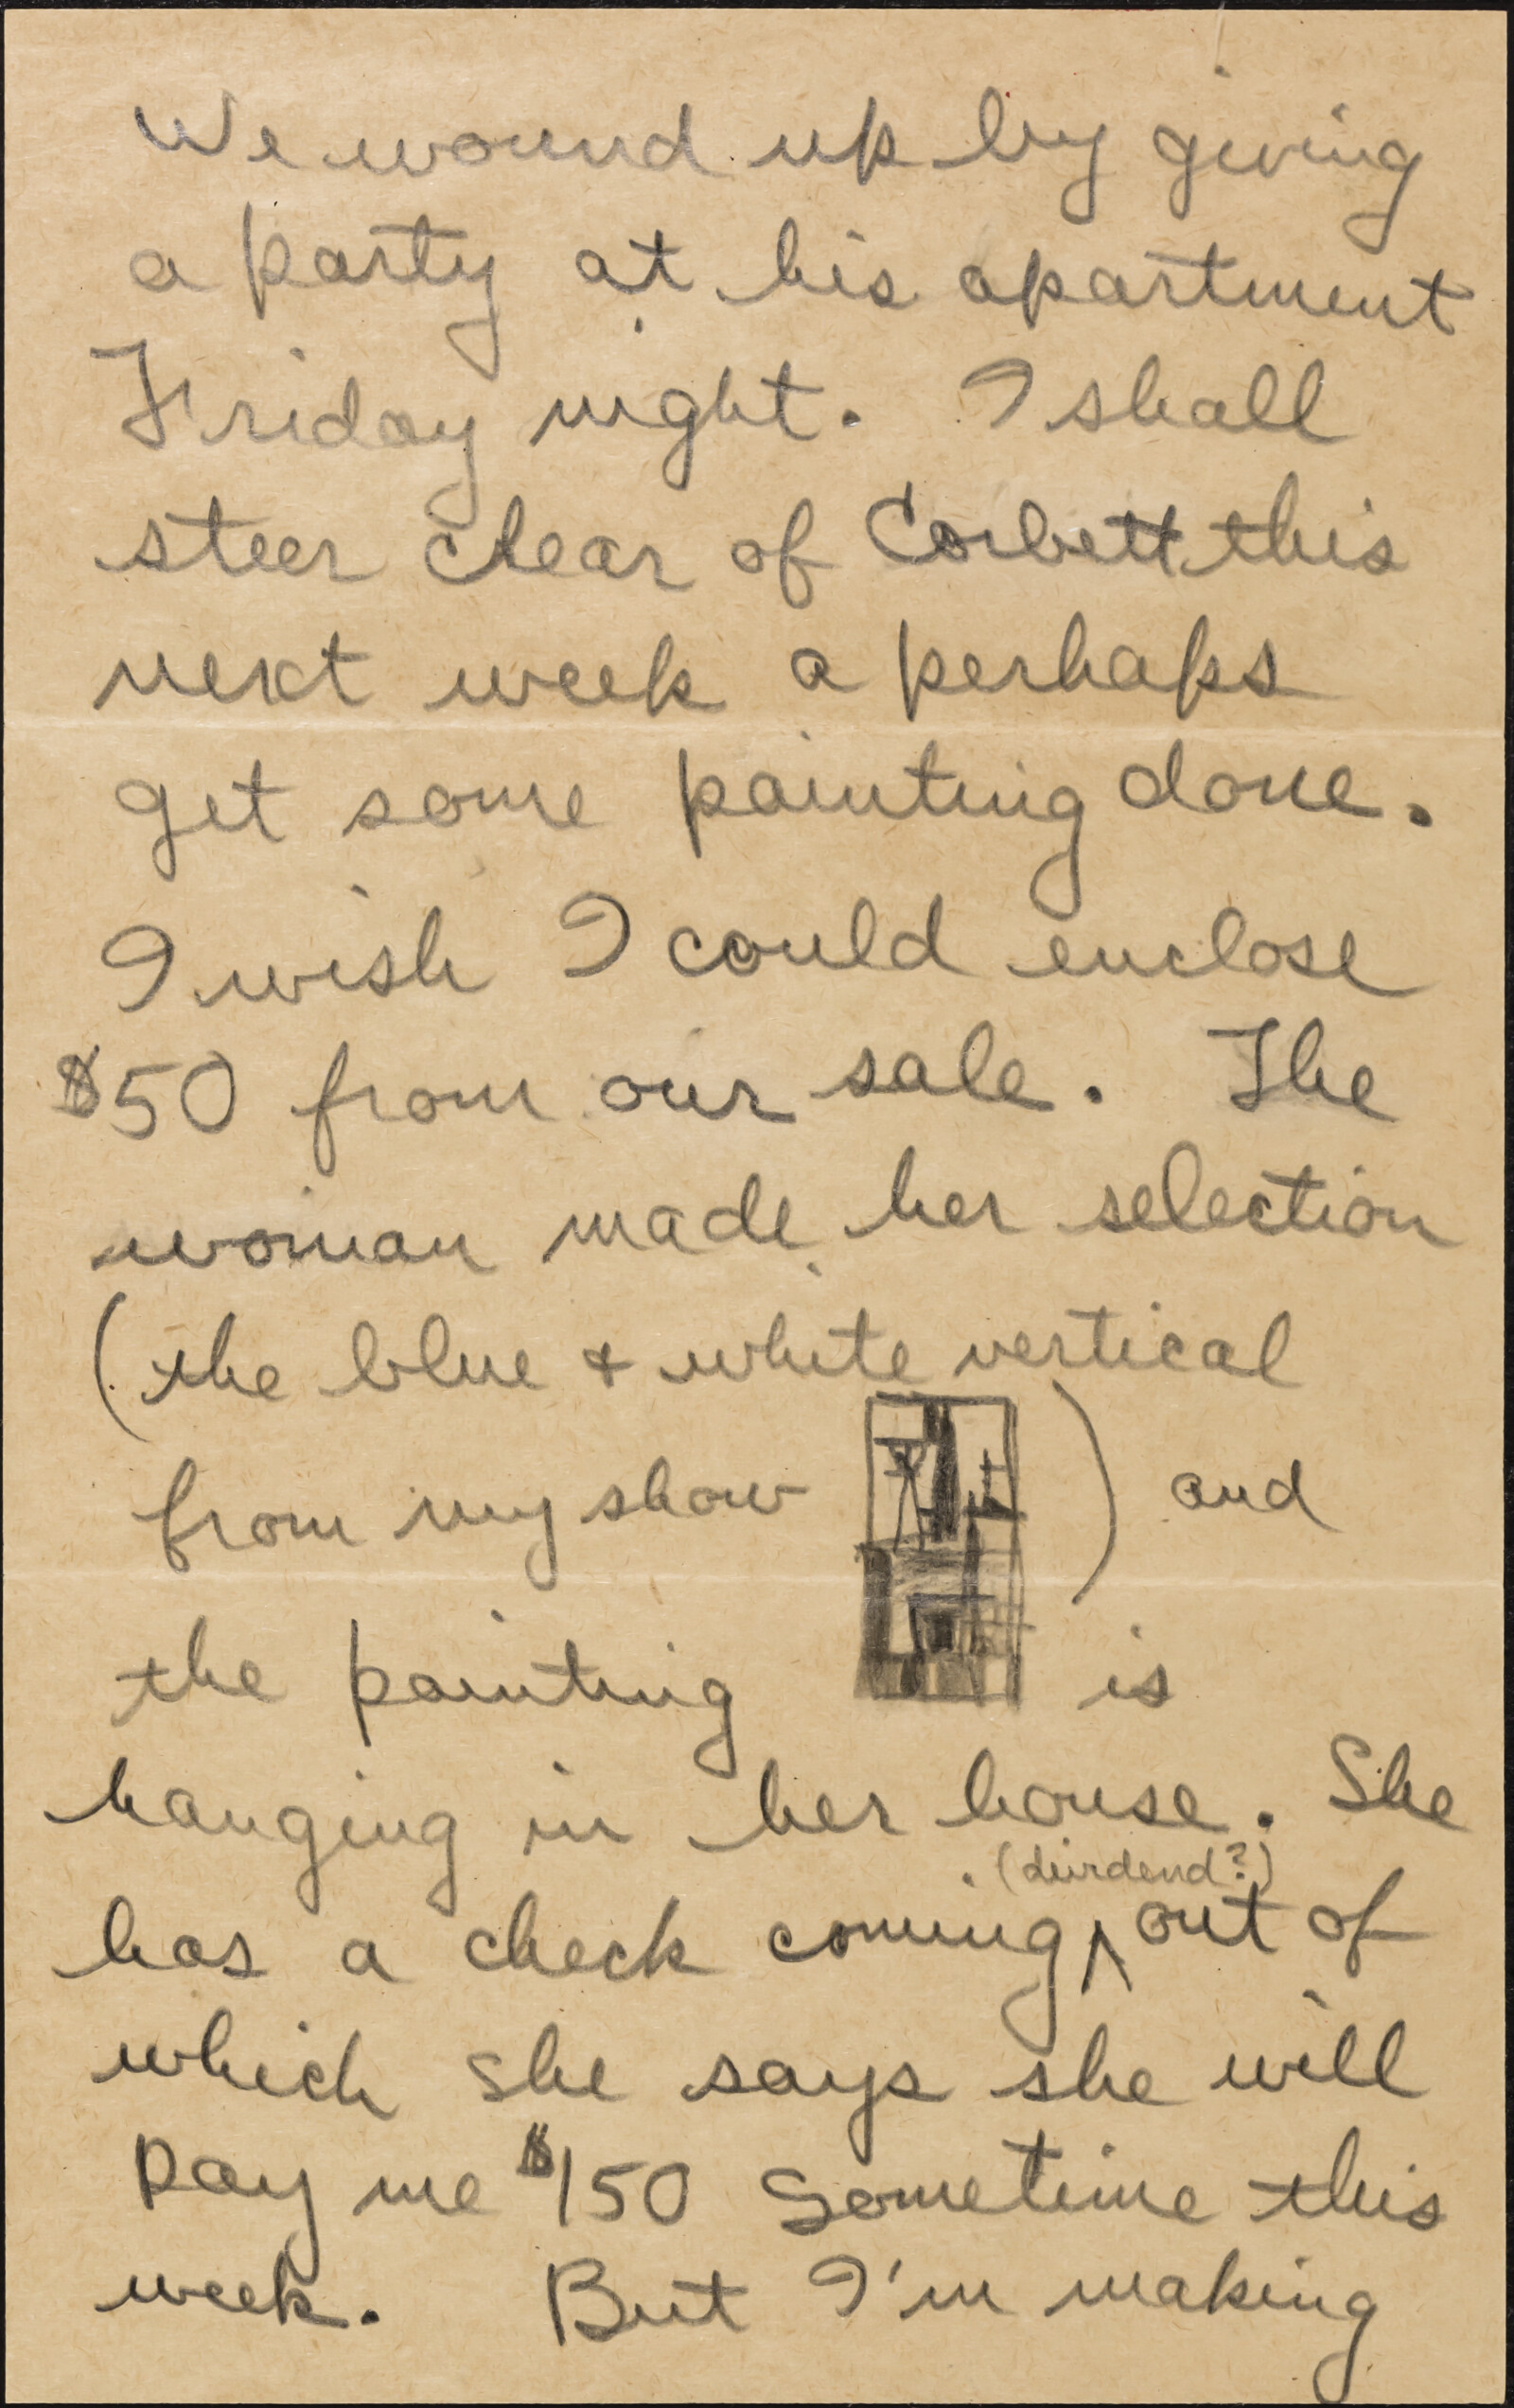 We wound up by giving
a party at his apartment
Friday night. I shall
steer clear of Corbett this
next week a perhaps
get some painting done.
I wish I could enclose
$50 from our sale. The
woman made her selection
(the blue + white vertical
from my show ) and
the painting is
hanging in her house. She
(dividend?)
has a check coming ^ out of
which she says she will
pay me $150 sometime this
week. But I'm making